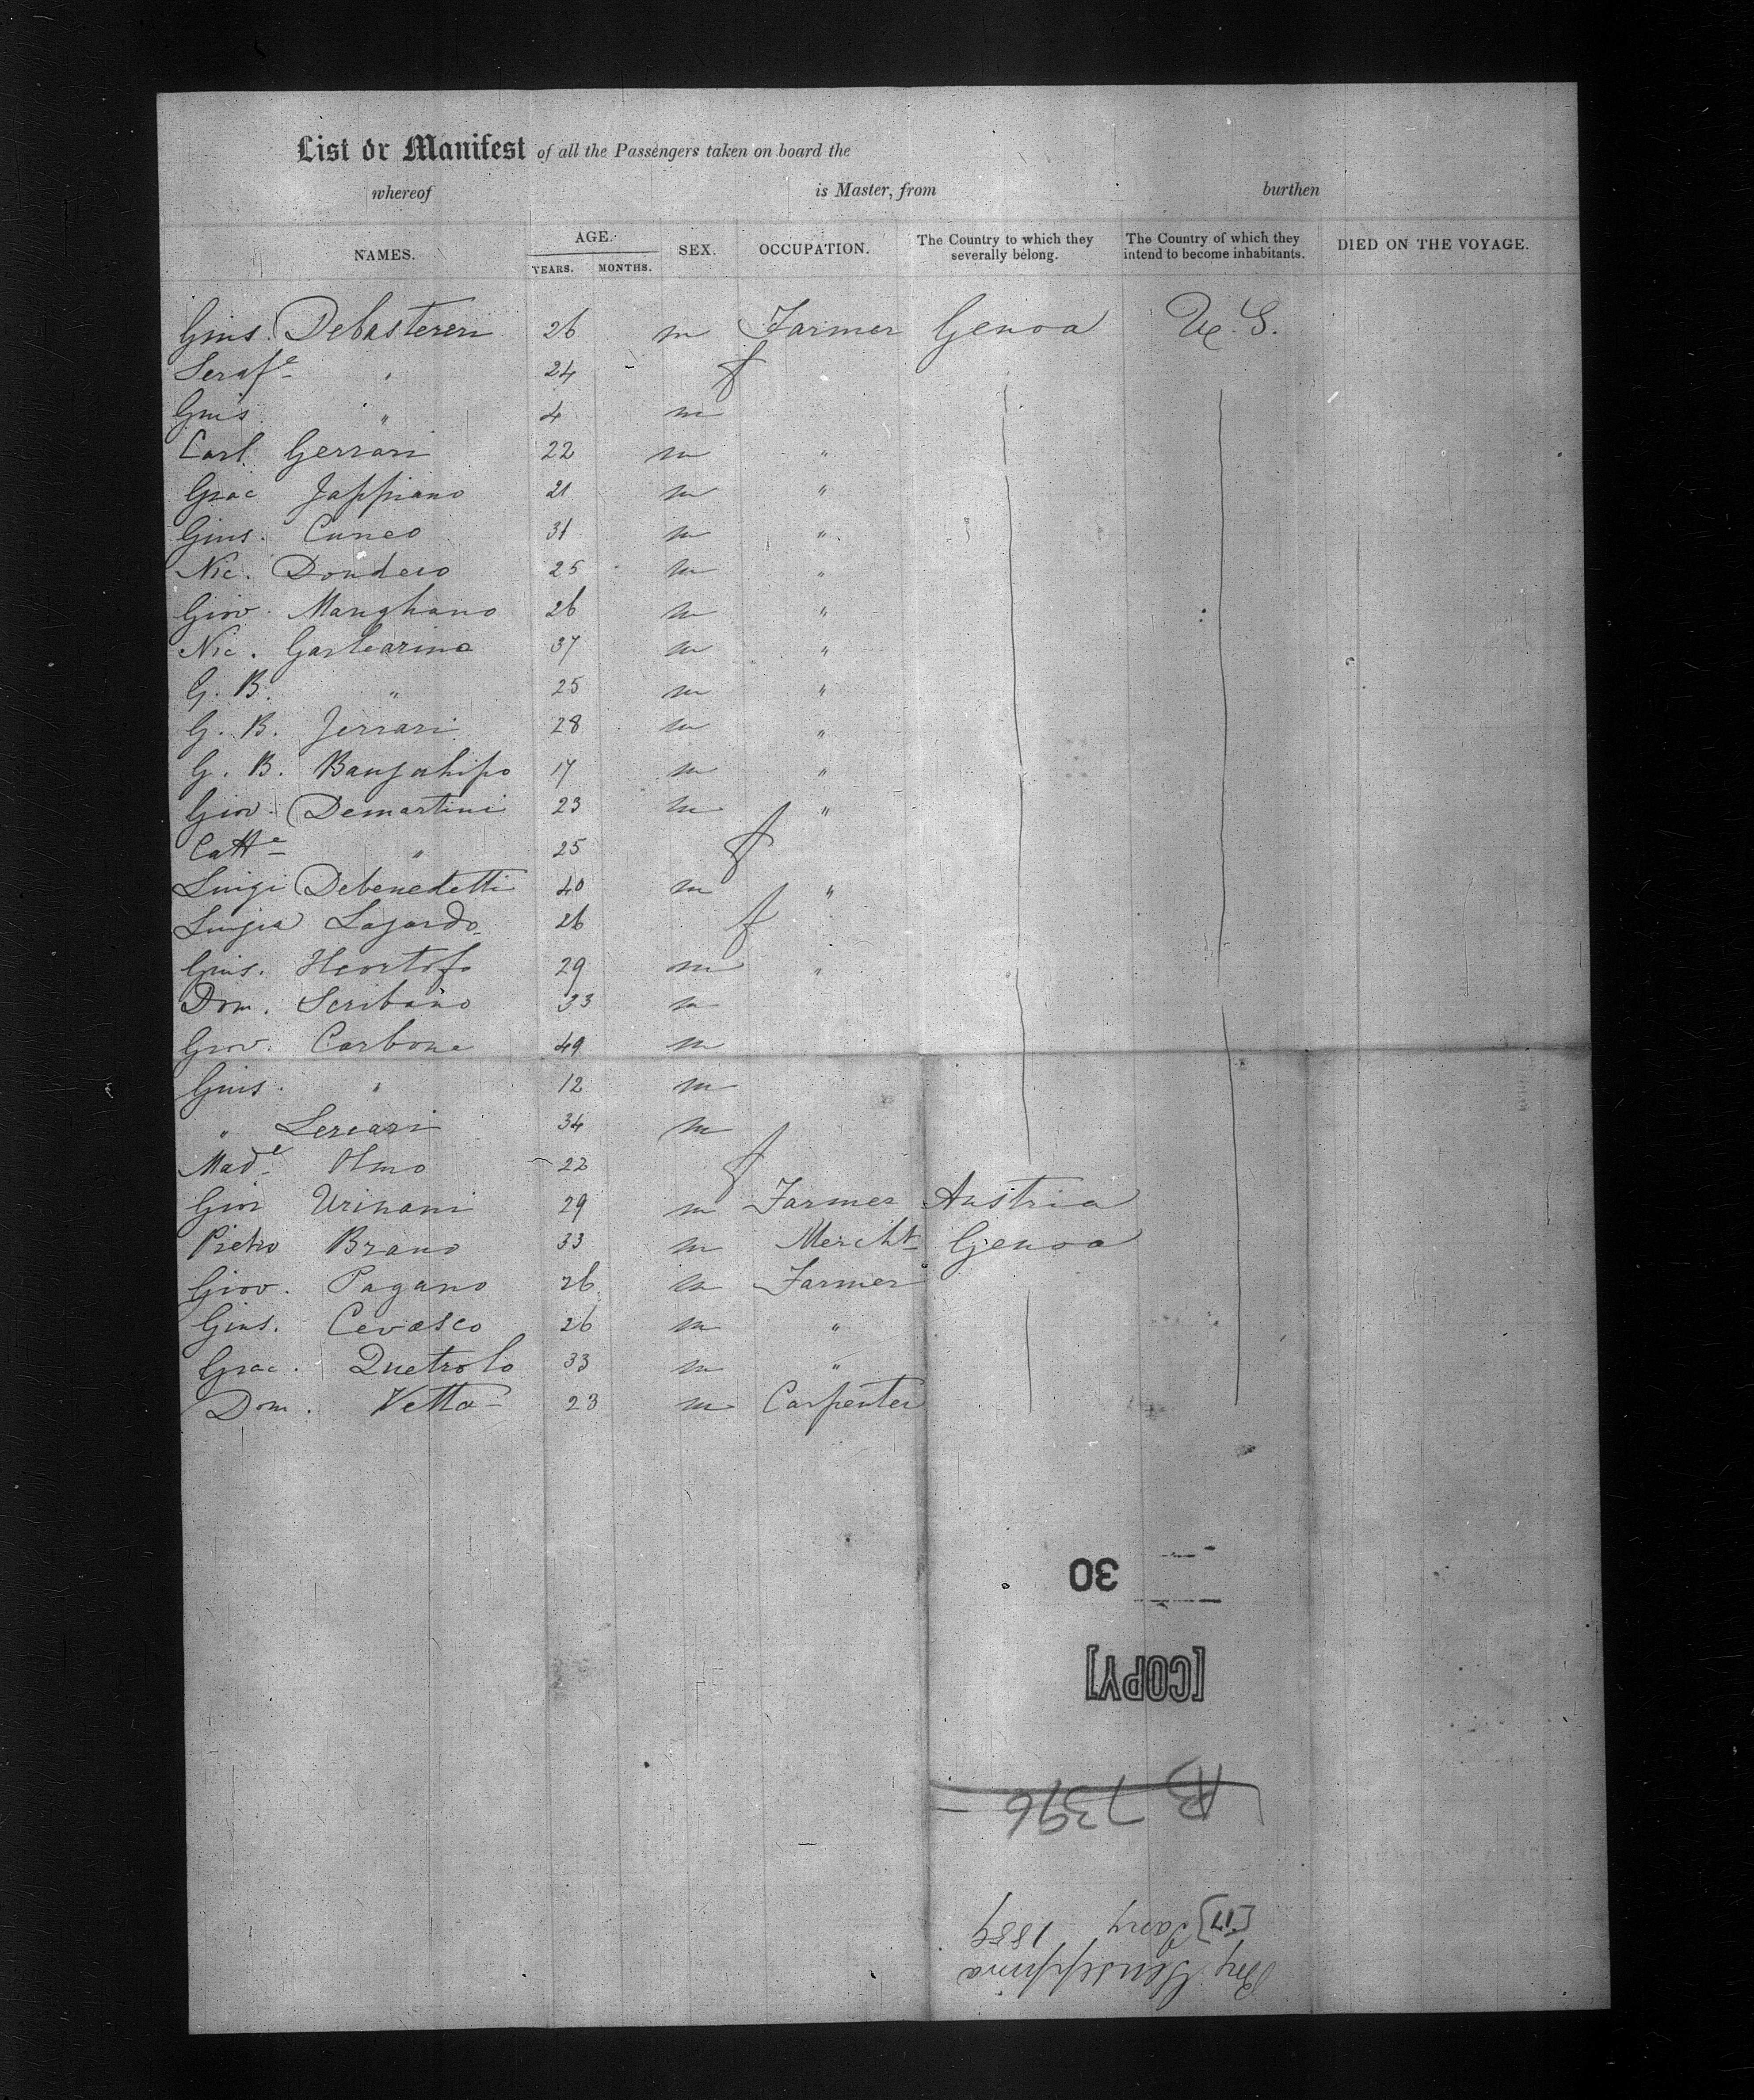 List or Manifest of all the Passengers taken on board the
whereof is Master, from burthen
NAMES. AGE. YEARS. MONTHS. SEX. OCCUPATION. The Country to which they severally belong. The Country of which they intend to become inhabitants. DIED ON THE VOYAGE.
Gius. 26 m Farmer Genoa U.S.
Serafe " 24 f
Gius " 4 m
Carl. Gerrari 22 m "
Grac Jappiano 21 m "
Gius. Cuneo 31 m "
Nic. Dondero 25 m "
Giov. Manghano 26 m "
Nic. Garbarino 37 m "
G. B. " 25 m "
G. B. Ferrari 28 m "
G. B. 17 m "
Giov. Demartini 23 m "
Catte " 25 f
Luigi Debenedetti 40 m "
Luigia 26 f
Gius. 29 m "
Dom. Scribano 33 m
Giov. Carbone 49 m
Gius. " 12 m
" Lercari 34 m
Made Olmo 22 f
Giov Urinani 29 m Farmer Austria
Pietro Brano 33 m Mercht Genoa
Giov. Pagano 26 m Farmer
Gius. Cevasco 26 m "
Grac. Quetrolo 33 m "
Dom. Vetta 23 m Carpenter
30
[COPY]
B 7396
[17] Jany 1859
Giuseppina